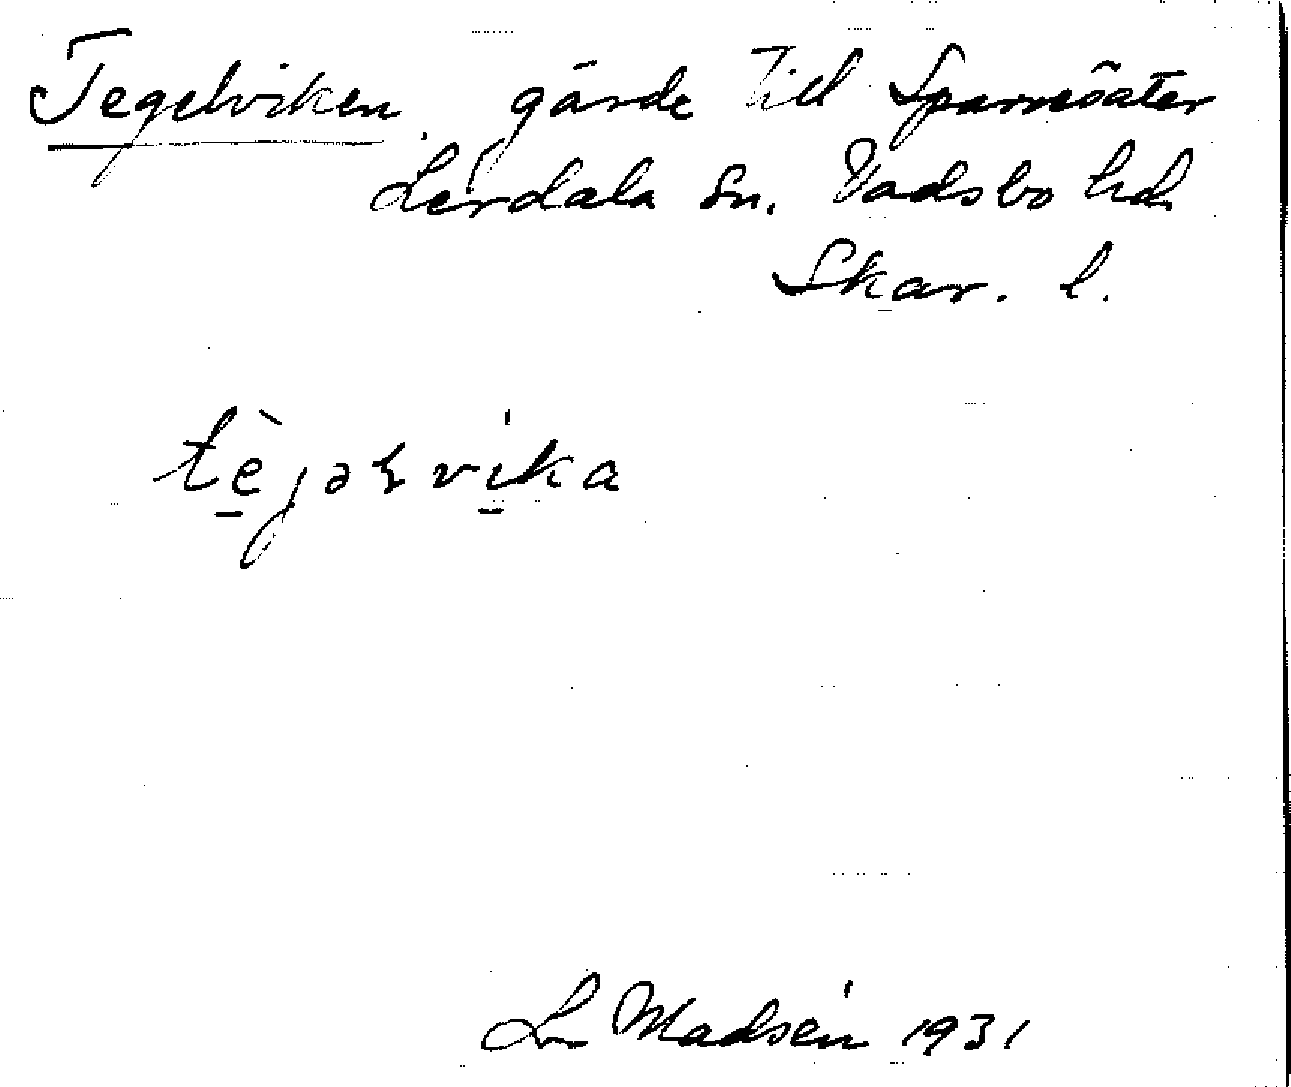 Tegelviken gärde till Sparresäter
Lerdala sn. Vadsbo hd.
Skar. l.
tèjəɽvika
Ln Madsén 1931